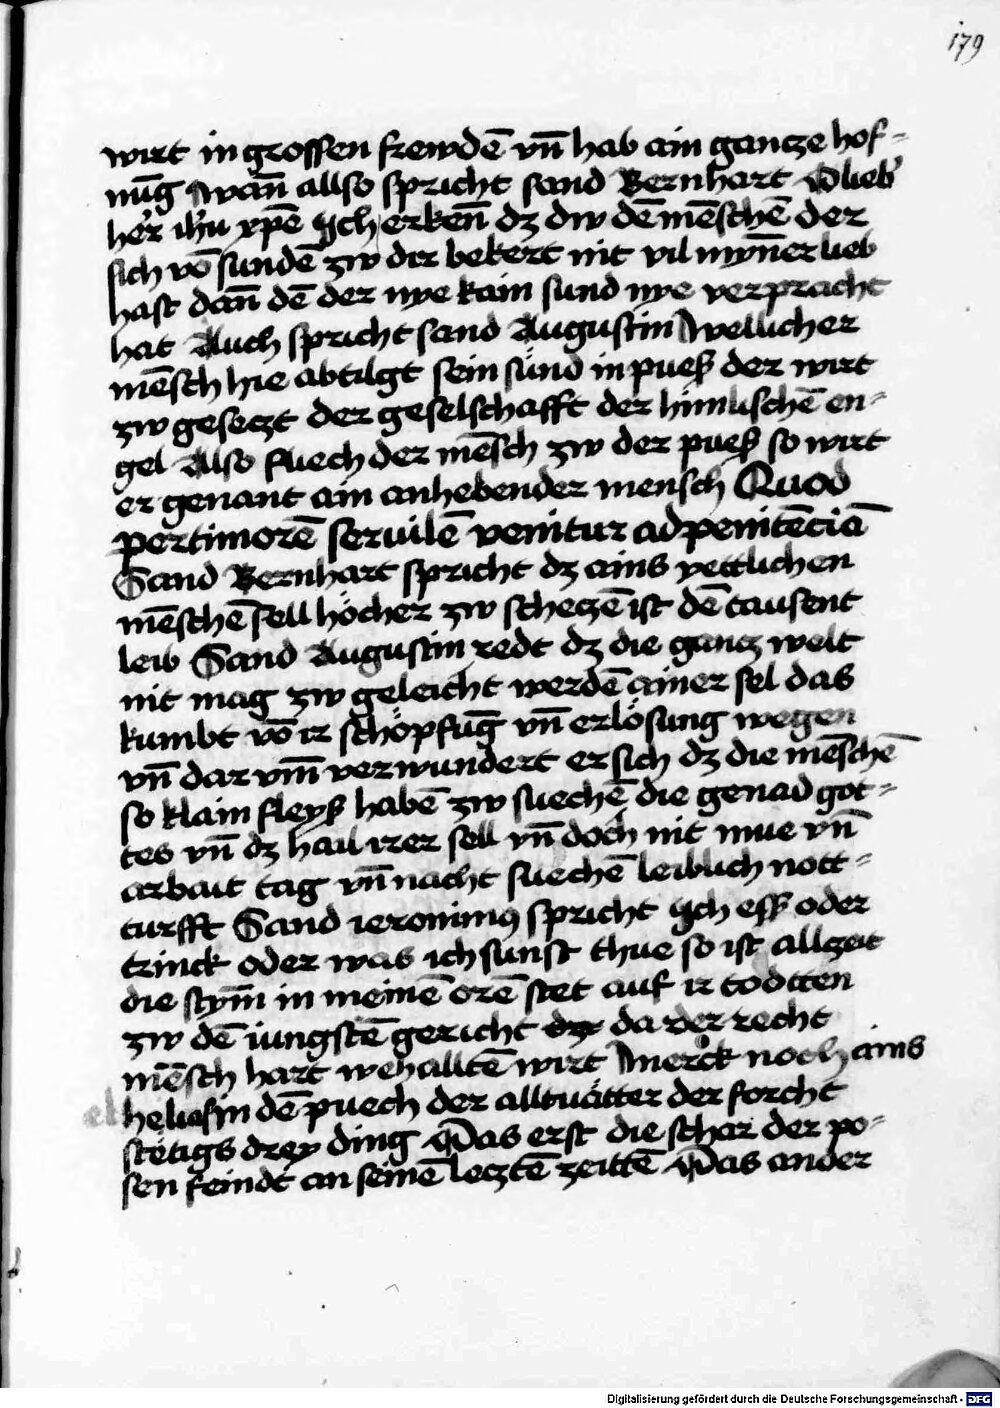 179
wirt in grossen frewdē vn̄ hab ain gantze hof-
nūg wan̄ allso spricht sand Bernhart O lieb'
her ih'u xp̄e Jch erken̄ dz dw dē mēschē der
sich vō sundē zw dir bekert nit vil myn̄er lieb
hast dan̄ dē der nye kain sund nye verpracht
hat Auch spricht sand Augustin wellicher
mēsch hie abtilgt sein sünd in pueß der wirt
zw gesetzt der geselschafft der himlischē en-
gel Also fluech der mēsch zw der pueß so wirt
er genant ain anhebender mensch Quod
per timorē seruilē venitur ad penitēciā
Sand Bernhart spricht dz ains yettlichen
mēschē sell höcher zw schetzē ist dē tausent
leib Sand Augustin redt dz die gantz welt
nit mag zw geleicht werdē ainer sel das
kumbt vō ir schöpfūg vn̄ erlösung wegen
vn̄ dar vm̄ verwundert er sich dz die mēschē
so klain fleyß habē zw suechē die genad got-
tes vn̄ dz hail irer sell vn̄ doch nit mue vn̄
arbait tag vn̄ nacht suechē leiblich nott-
turfft Sand ieronimꝰ spricht Jch eß oder
trinck oder was ich sunst thue so ist allzeit
die stym̄ in meinē orē stet auf ir todtten
zw dē iungstē gericht dz da der recht
mēsch hart wehalltē wirt Merck noch ains
helias in dē puech der alltuätter der forcht
stētigs drey ding Das erst die schar der po-
sen feindt an seinē letztē zeittē Das ander
Digitalisierung gefördert durch die Deutsche Forschungsgemeinschaft - DFG